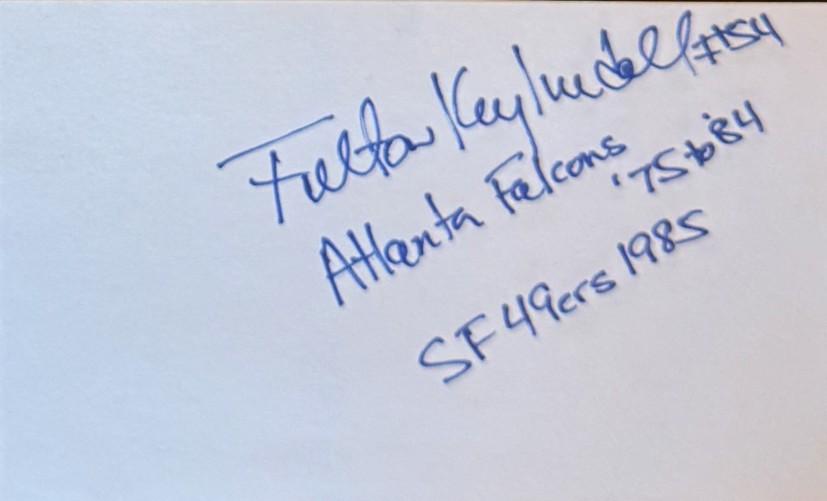 Fulton Kuykendall #54
Atlanta Falcons '75 to '84
SF 49ers 1985